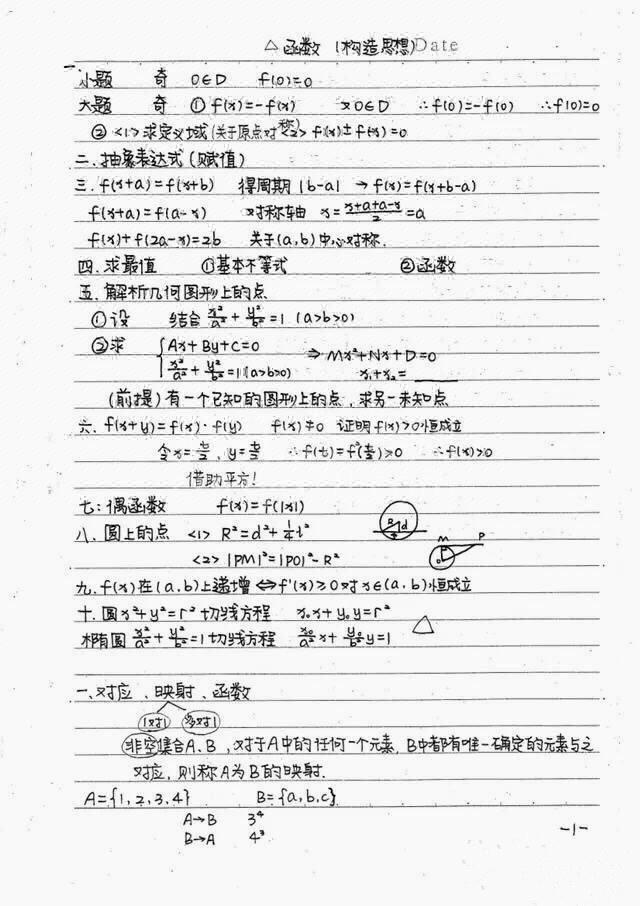 △函数（构造思想）Date
一.
小题 奇 0∈D f(0)=0
大题 奇 ①f(x)=-f(x) 又0∈D ∴f(0)=-f(0) ∴f(0)=0
②<1>求定义域(关于原点对称)<2> f(x)±f(-x)=0
二.抽象表达式(赋值)
三.f(x+a)=f(x+b) 得周期|b-a| → f(x)=f(x+b-a)
f(x+a)=f(a-x) 对称轴 x=(x+a+a-x)/2=a
f(x)+f(2a-x)=2b 关于(a,b)中心对称.
四.求最值 ①基本不等式 ②函数
五.解析几何图形上的点
①设 结合 x²/a²+y²/b²=1 (a>b>0)
②求 { Ax+By+C=0
x²/a²+y²/b²=1(a>b>0) ⇒ Mx²+Nx+D=0
x₁+x₂=____
(前提)有一个已知的图形上的点,求另一未知点
六.f(x+y)=f(x)·f(y) f(x)≠0 证明f(x)>0恒成立
令x=t/2,y=t/2 ∴f(t)=f²(t/2)>0 ∴f(x)>0
借助平方!
七:偶函数 f(x)=f(|x|)
八.圆上的点 <1> R²=d²+¼l² R d
<2> |PM|²=|PO|²-R² M P O
九.f(x)在(a,b)上递增⇔f'(x)≥0对x∈(a,b)恒成立
十.圆x²+y²=r²切线方程 x₀x+y₀y=r²
椭圆 x²/a²+y²/b²=1切线方程 x₀/a² x+y₀/b² y=1 △
一.对应、映射、函数
1对1 多对1
非空集合A、B,对于A中的任何一个元素,B中都有唯一确定的元素与之
对应,则称A为B的映射.
A={1,2,3,4} B={a,b,c}
A→B 3⁴
B→A 4³
-1-